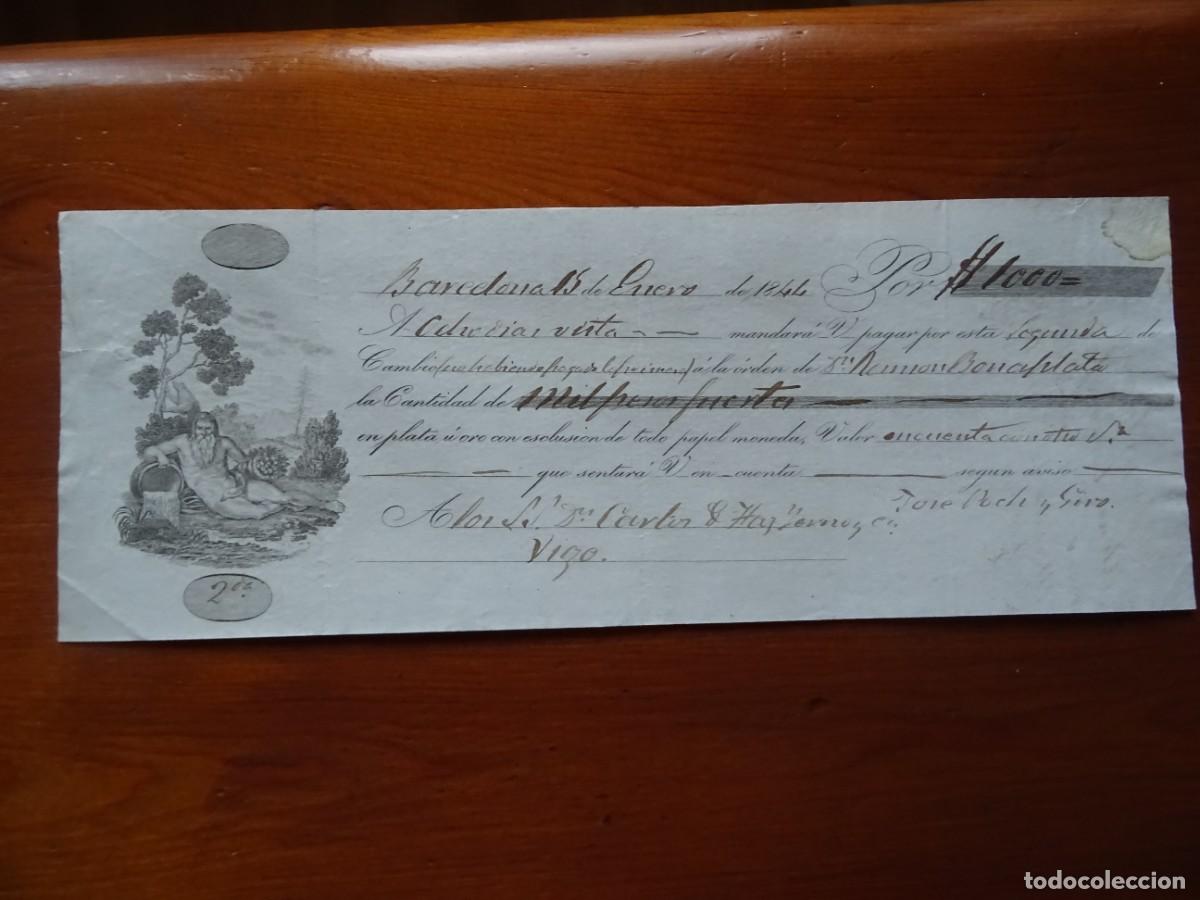 Barcelona 15 de Enero de 1844 Por $ 1000=
A Ocho dias vista mandará V. pagar por esta Segunda de
Cambio (no habiendo pago de la primera) á la órden de Dn. Ramon Bonaplata
la Cantidad de Mil pesos fuertes
en plata ú oro con esclusion de todo papel moneda, Valor en cuenta con dho Sr.
que sentará V en cuenta segun aviso
José Poch y Giro.
A los SS. Dn. Carlos y Ca.
Vigo.
2da.
todocoleccion